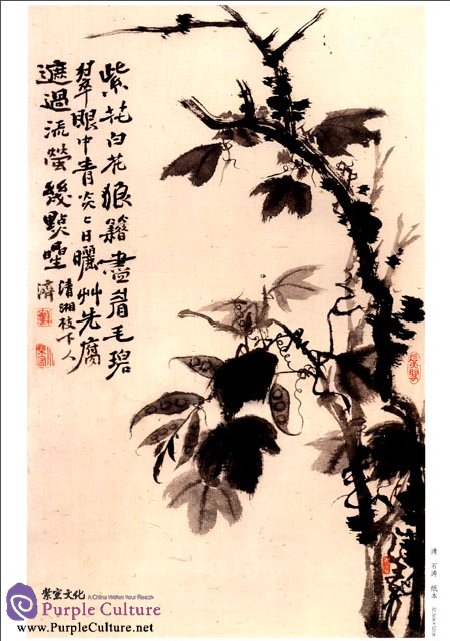 紫花白花狼籍盡眉毛碧
翠眼中青炎々日曬艸先腐
遮過流螢幾點星
清湘枝下人
濟
清 石濤 紙本
紫宣文化 A China Within Your Reach
Purple Culture
www.PurpleCulture.net